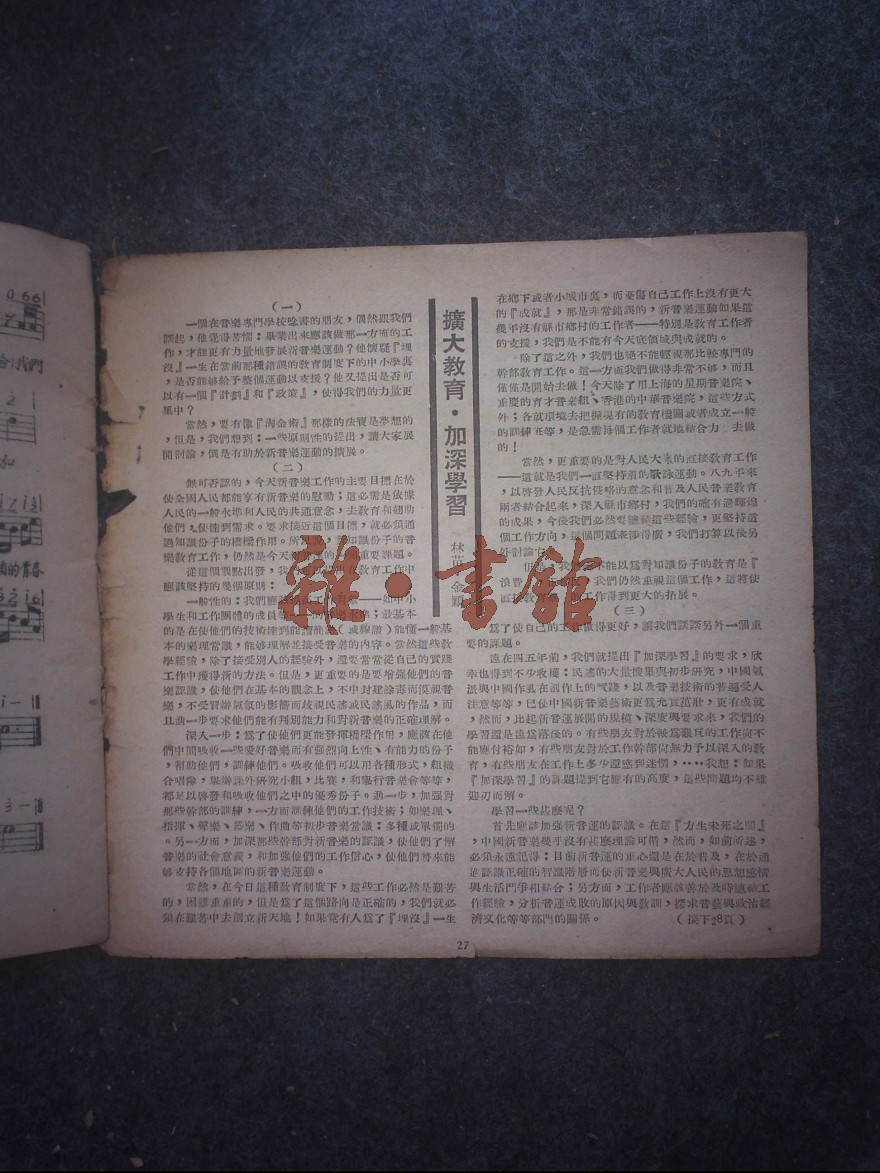 擴大教育·加深學習
（一）
一個在音樂專門學校唸書的朋友，偶然跟我們
談起，他覺得苦惱：畢業出來應該做那一方面的工
作，才能更有力量地發展新音樂運動？他懷疑『埋
沒』一生在當前那種錯誤的教育制度下的中小學裏
，是否能够給予整個運動以支援？他又提出是否可
以有一個『計劃』和『政策』，使得我們的力量更
集中？
當然，要有像『淘金術』那樣的法寶是夢想的
，但是，我們想到：一些原則性的提出，讓大家展
開討論，倒是有助於新音樂運動的擴展。
（二）
無可否認的，今天新音樂工作的主要目標在於
使全國人民都能享有新音樂的慰勵；這必需是依據
人民的一般水準和人民的共通意念，去教育和翅助
他們，使達到需求。要求接近這個目標，就必須通
過知識份子的橋樑作用。所以，知識份子的音
樂教育工作，仍然是今天重要課題。
從這個觀點出發，我們在教育工作中
應該堅持的幾個原則：
一般性的：我們應該——如中小
學生和工作團體的成員等；最基本
的是在使他們的技術達到能讀簡譜（或線譜）能懂一般基
本的樂理常識，能够理解並接受音樂的內容。當然這些教
學經驗，除了接受別人的經驗外，還要常常從自己的實踐
工作中獲得新的方法。但是，更重要的是要增強他們的音
樂認識，使他們在基本的觀念上，不中封建餘毒而漠視音
樂，不受買辦氣氛的影響而歧視民謠或民謠風的作品，而
且進一步要求他們能有判別能力和對新音樂的正確理解。
深入一步：爲了使他們更能發揮橋樑作用，應該在他
們中間吸收一些愛好音樂而有强烈向上性、有能力的份子
，幫助他們，訓練他們。吸收他們可以用各種形式，組織
合唱隊，舉辦課外研究小組，比賽，和舉行音樂會等等，
都足以啓發和吸收他們之中的優秀份子。進一步，加强對
那些幹部的訓練，一方面訓練他們的工作技術；如樂理、
指揮、聲樂、器樂、作曲等初步音樂常識：多種或單獨的
。另一方面，加深那些幹部對新音樂的認識，使他們了解
音樂的社會意義，和加强他們的工作信心，使他們將來能
够支持各個地區的新音樂運動。
當然，在今日這種教育制度下，這些工作必然是艱苦
的，困難重重的，但是爲了這個路向是正確的，我們就必
須在艱苦中去創立新天地！如果竟有人爲了『埋沒』一生
在鄉下或者小城市裏，而憂傷自己工作上沒有更大
的『成就』，那是非常錯誤的，新音樂運動如果這
幾年沒有縣市鄉村的工作者——特別是教育工作者
的支援，我們是不能有今天底領域與成就的。
除了這之外，我們也絕不能輕視那比較專門的
幹部教育工作。這一方面我們做得非常不够，而且
僅僅是開始去做！今天除了用上海的星期音樂院、
重慶的育才音樂組、香港的中華音樂院，這些方式
外；各就環境去把握現有的教育機關或者成立一般
的訓練班等，是急需每個工作者就地結合力　去做
的！
當然，更重要的是對人民大衆的直接教育工作
——這就是我們一直堅持着的歌詠運動。八九年來
，以啓發人民反抗侵略的意念和普及人民音樂教育
兩者結合起來，深入縣市鄉村，我們的確有過輝煌
的成果，今後我們必然要繼續這些經驗，更堅持這
個工作方向，這個問題牽涉得廣，我們打算以後另
外討論它。
但是，我們不能以爲對知識份子的教育是『
浪費』，我們仍然重視這個工作，這將使
直接教育工作得到更大的拓展。
（三）
爲了使自己的工作做得更好，讓我們談談另外一個重
要的課題。
遠在四五年前，我們就提出『加深學習』的要求，欣
幸也得到不少收穫：民謠的大量搜集與初步研究，中國氣
派與中國作風在創作上的實踐，以及音樂技術的普遍受人
注意等等，已使中國新音樂藝術更爲充實茁壯，更有成就
，然而，比起新音運展開的規模、深度與要求來，我們的
學習還是遠爲落後的。有些朋友對於較爲艱艮的工作尙不
能應付裕如，有些朋友對於工作幹部尙無力予以深入的教
育，有些朋友在工作上多少還感到迷惘，……我想：如果
『加深學習』的課題提到它應有的高度，這些問題均不難
迎刃而解。
學習一些甚麼呢？
首先應該加強新音運的認識。在這『方生未死之間』
，中國新音樂幾乎沒有甚麼理論可循，然而，如前所述，
必須永遠記得：目前新音運的重心還是在於普及，在於通
過認識正確的智識階層而使新音樂與廣大人民的思想感情
與生活鬥爭相結合；另方面，工作者應該善於及時總結工
作經驗，分析音運成敗的原因與教訓，探求音藝與政治經
濟文化等等部門的關係。　（接下28頁）
27
雜·書館